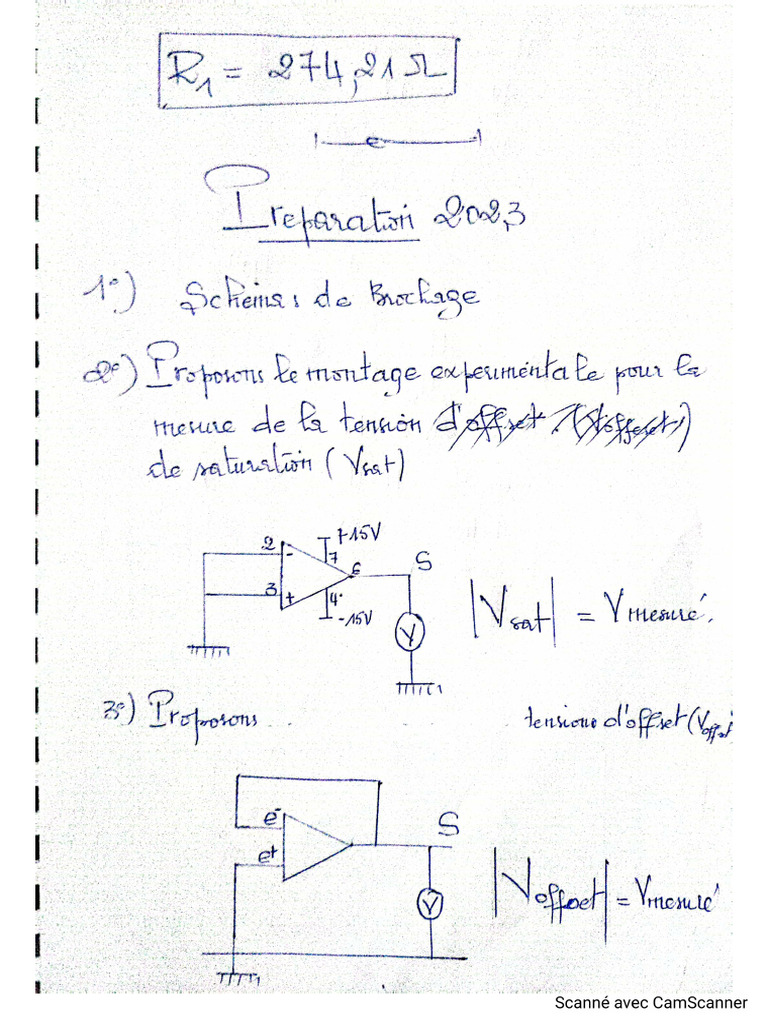 R1 = 274,21 Ω
Préparation 2023
1°) Schémas de Brochage
2°) Proposons le montage expérimentale pour la
mesure de la tension d'offset (Voffset)
de saturation (Vsat)
+15V
2
-
7
6
S
3
+
4
-15V
V
|Vsat| = Vmesuré.
3°) Proposons ... ... tensions d'offset (Voffset)
e-
S
e+
V
|Voffset| = Vmesuré
Scanné avec CamScanner